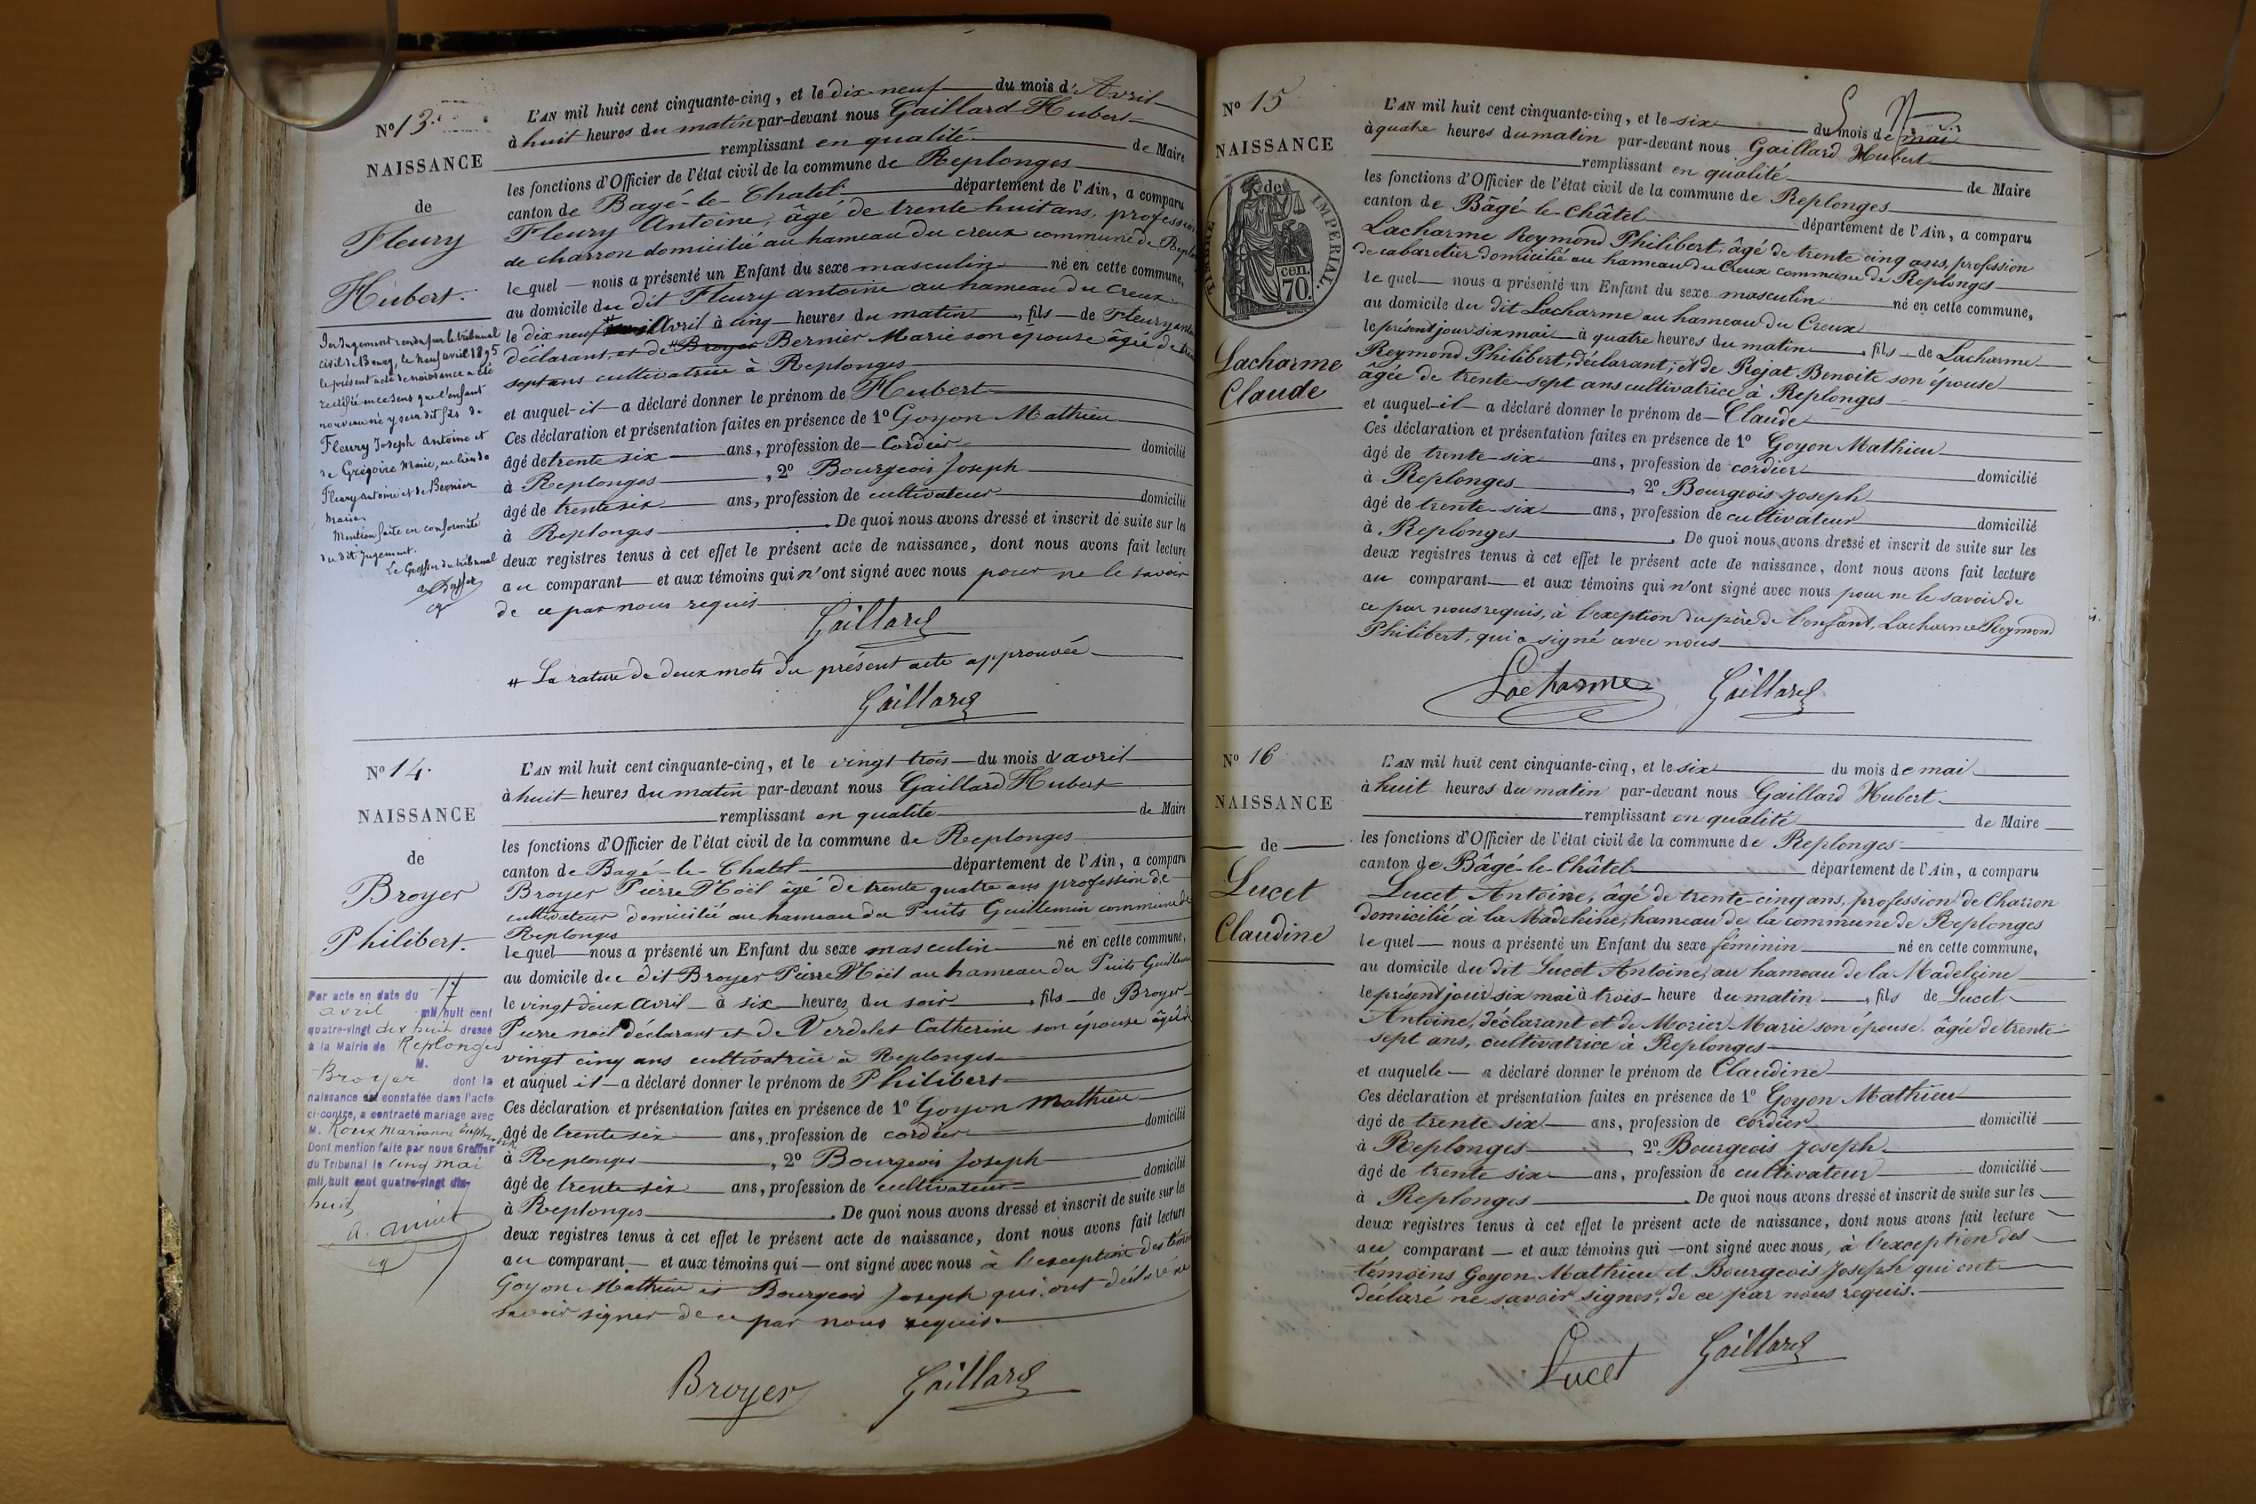 No 13.
NAISSANCE
de
Fleury
Hubert.
Par Jugement rendu par le tribunal
civil de Bourg, le neuf avril 1895
le présent acte de naissance a été
rectifié en ce sens que l'enfant
nouveau né y sera dit fils de
Fleury Joseph Antoine et
de Grégoire Marie, au lieu de
Fleury Antoine et de Bernier
Marie.
Mention faite en conformité
du dit Jugement.
Le Greffier du tribunal
L'AN mil huit cent cinquante-cinq, et le dix-neuf du mois d'Avril
à huit heures du matin par-devant nous Gaillard Hubert
remplissant en qualité de Maire
les fonctions d'Officier de l'état civil de la commune de Replonges
canton de Bagé-le-Chatel département de l'Ain, a comparu
Fleury Antoine, âgé de trente huit ans, profession
de charron domicilié au hameau du creux commune de Replo
le quel nous a présenté un Enfant du sexe masculin né en cette commune,
au domicile du dit Fleury antoine au hameau du Creux
le dix neuf # Avril à cinq heures du matin, fils de Fleury anto
déclarant, et de # Broyer Bernier Marie son épouse âgée de tren
sept ans cultivatrice à Replonges
et auquel il a déclaré donner le prénom de Hubert
Ces déclaration et présentation faites en présence de 1o Goyon Mathieu
âgé de trente six ans, profession de Cordier domicilié
à Replonges, 2o Bourgeois Joseph
âgé de trente six ans, profession de cultivateur domicilié
à Replonges. De quoi nous avons dressé et inscrit de suite sur les
deux registres tenus à cet effet le présent acte de naissance, dont nous avons fait lecture
au comparant et aux témoins qui n'ont signé avec nous pour ne le savoir
de ce par nous requis
Gaillard
# La rature de deux mots du présent acte approuvée
Gaillard
No 14.
NAISSANCE
de
Broyer
Philibert.
Par acte en date du 17
avril mil huit cent
quatre-vingt dix huit dressé
à la Mairie de Replonges
M.
Broyer dont la
naissance est constatée dans l'acte
ci-contre, a contracté mariage avec
M. Roux Marianne
Dont mention faite par nous Greffier
du Tribunal le cinq mai
mil huit cent quatre-vingt dix-
huit
L'AN mil huit cent cinquante-cinq, et le vingt trois du mois d'avril
à huit heures du matin par-devant nous Gaillard Hubert
remplissant en qualité de Maire
les fonctions d'Officier de l'état civil de la commune de Replonges
canton de Bagé-le-Chatel département de l'Ain, a comparu
Broyer Pierre Noël âgé de trente quatre ans profession de
cultivateur domicilié au hameau du Puits Guillemin commune de
Replonges
le quel nous a présenté un Enfant du sexe masculin né en cette commune,
au domicile du dit Broyer Pierre Noël au hameau du Puits Guillem
le vingt deux Avril à six heures du soir, fils de Broyer
Pierre noël déclarant et de Verdelet Catherine son épouse âgée de
vingt cinq ans cultivatrice à Replonges
et auquel il a déclaré donner le prénom de Philibert
Ces déclaration et présentation faites en présence de 1o Goyon Mathieu
âgé de trente six ans, profession de cordier domicilié
à Replonges, 2o Bourgeois Joseph
âgé de trente six ans, profession de cultivateur domicilié
à Replonges. De quoi nous avons dressé et inscrit de suite sur les
deux registres tenus à cet effet le présent acte de naissance, dont nous avons fait lecture
au comparant et aux témoins qui ont signé avec nous à l'exception des témoins
Goyon Mathieu et Bourgeois Joseph qui ont déclaré ne
savoir signer de ce par nous requis.
Broyer Gaillard
No 15
NAISSANCE
de
TIMBRE IMPERIAL.
70. cen.
Lacharme
Claude
L'AN mil huit cent cinquante-cinq, et le six du mois de mai
à quatre heures du matin par-devant nous Gaillard Hubert
remplissant en qualité de Maire
les fonctions d'Officier de l'état civil de la commune de Replonges
canton de Bâgé-le-Châtel département de l'Ain, a comparu
Lacharme Reymond Philibert, âgé de trente cinq ans, profession
de cabaretier domicilié au hameau du Creux commune de Replonges
le quel nous a présenté un Enfant du sexe masculin né en cette commune,
au domicile du dit Lacharme au hameau du Creux
le présent jour six mai à quatre heures du matin, fils de Lacharme
Reymond Philibert, déclarant, et de Rojat Benoite son épouse
âgée de trente-sept ans cultivatrice à Replonges
et auquel il a déclaré donner le prénom de Claude
Ces déclaration et présentation faites en présence de 1o Goyon Mathieu
âgé de trente-six ans, profession de cordier domicilié
à Replonges, 2o Bourgeois Joseph
âgé de trente-six ans, profession de cultivateur domicilié
à Replonges. De quoi nous avons dressé et inscrit de suite sur les
deux registres tenus à cet effet le présent acte de naissance, dont nous avons fait lecture
au comparant et aux témoins qui n'ont signé avec nous pour ne le savoir de
ce par nous requis, à l'exception du père de l'enfant, Lacharme Reymond
Philibert, qui a signé avec nous
Lacharme Gaillard
No 16
NAISSANCE
de
Lucet
Claudine
L'AN mil huit cent cinquante-cinq, et le six du mois de mai
à huit heures du matin par-devant nous Gaillard Hubert
remplissant en qualité de Maire
les fonctions d'Officier de l'état civil de la commune de Replonges
canton de Bâgé-le-Châtel département de l'Ain, a comparu
Lucet Antoine, âgé de trente cinq ans, profession de Charron
domicilié à la Madeleine, hameau de la commune de Replonges
le quel nous a présenté un Enfant du sexe féminin né en cette commune,
au domicile du dit Lucet Antoine, au hameau de la Madeleine
le présent jour six mai à trois heure du matin, fils de Lucet
Antoine, déclarant et de Morier Marie son épouse âgée de trente
sept ans, cultivatrice à Replonges
et auquelle a déclaré donner le prénom de Claudine
Ces déclaration et présentation faites en présence de 1o Goyon Mathieu
âgé de trente six ans, profession de cordier domicilié
à Replonges, 2o Bourgeois Joseph
âgé de trente six ans, profession de cultivateur domicilié
à Replonges. De quoi nous avons dressé et inscrit de suite sur les
deux registres tenus à cet effet le présent acte de naissance, dont nous avons fait lecture
au comparant et aux témoins qui ont signé avec nous, à l'exception des
témoins Goyon Mathieu et Bourgeois Joseph qui ont
déclaré ne savoir signer, de ce par nous requis.
Lucet Gaillard